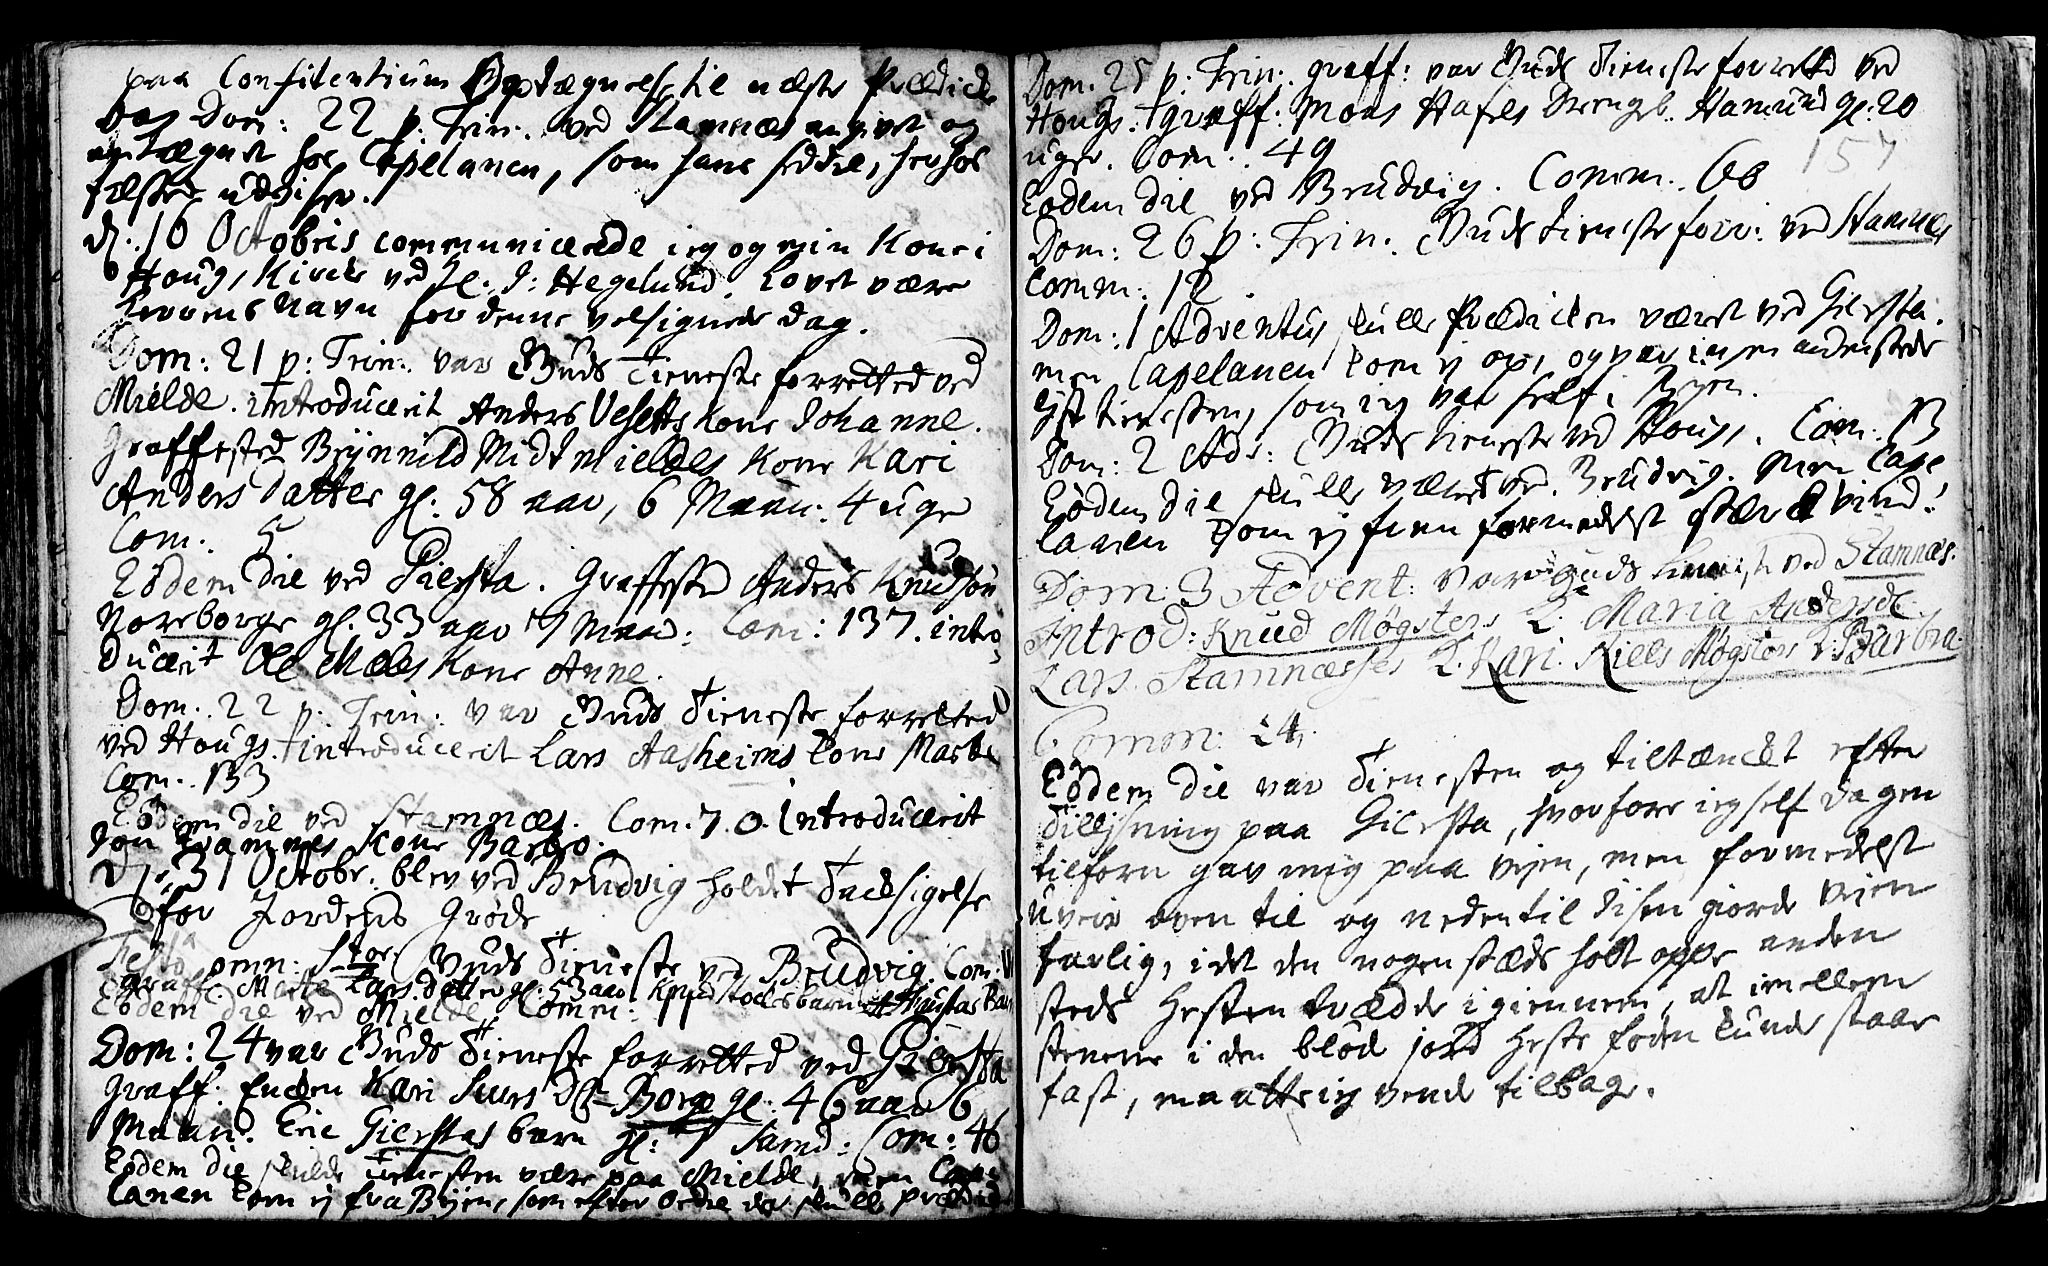 paa Confitentium Optægnelse til næste Prædicke
dag Dom: 22 p: Trin: ved Stamnæs angivet og
antægnet hos Capelanen, som hans seddel, herhos
fæsted udviser.
d: 16 Octobris communicerede ieg og min Kone i
Houg, Kircke ved Hr. J: Hegelund. Lovet være
Herrens Navn for denne velsignede dag.
Dom: 21 p: Trin: var Guds Tieneste forretted ved
Mielde. introducerit Anders Veseths Kone Johanne.
Graffested Brynnild Midtmieldes Kone Kari
Anders datter gl: 58 aar, 6 Maan: 4 uger
Com: 5
Eodem die ved Giersta. Graffested Anders Knudsøn
Noreborge gl. 33 aar 9 Maan: Com: 137. intro-
ducerit Ole Mæles Kone Anne.
Dom: 22 p: Trin: var Guds Tieneste forretted
ved Hougs. introducerit Lars Aasheims Kone Marte
Com. 133
Eodem die ved Stamnæs. Com. 70. Introducerit
Jon Kone Barbro.
D: 31 Octobr: blev ved Brudvig holdet Tacksigelse
for Jordens Grøde
Festo omn: Guds Tieneste ved Brudvig. Com:
graff: Marte Lars datter gl: 53 aar Knud barn
Eodem die ved Mielde Comm:
Dom: 24 var Guds Tieneste forretted ved Giersta
Graff: Encken Kari Siurs D: Borge gl: 46 aar 6
Maan. Eric Gierstas barn gl: Com: 46
Eodem die skulde Tienesten være paa Mielde, men Cape-
lanen kom ej fra Byen, som efter Ordre der skulle prædicke
Dom: 25 p: Trin: graff: var Guds Tieneste forretted ved
Hougs. graff: Mons Hafres Drengb. Hamund gl: 20
uger. Com: 49
157
Eodem die ved Brudvig. Comm. 66
Dom: 26 p: Trin: Guds Tieneste forr: ved Stamnæs
Comm: 12
Dom: 1 Adventus skulle Prædicken været ved Giersta.
men Capelanen kom ej op, og var ingen andensteds
tienesten, som ieg var self i Byen.
Dom: 2 Adv: Guds Tieneste ved Houg,. Com. 13
Eodem die skulle været ved Brudvig. Men Cape
lanen kom ej frem formedelst stærck vind.
Dom: 3 Advent: var Guds tieniste ved Stamnæs.
Introd: Knud Møgsters K: Maria Andersdr.
Lars Stamnæsses K. Kari. Niels Møgsters K: Barbra
Comm: 24.
Eodem die var Tienesten og tiltænckt efter
Tillysning paa Giersta, hvorfore ieg self dagen
tilforn gav mig paa vejen, men formedelst
uveir oven til og neden til Jisen giorde vejen
farlig, i det den nogenstæds holt oppe anden
steds Hesten trædde igiennem, at imellem
stenene i den blød jord Heste foden kunde staae
fast, maatte ieg vende tilbage.